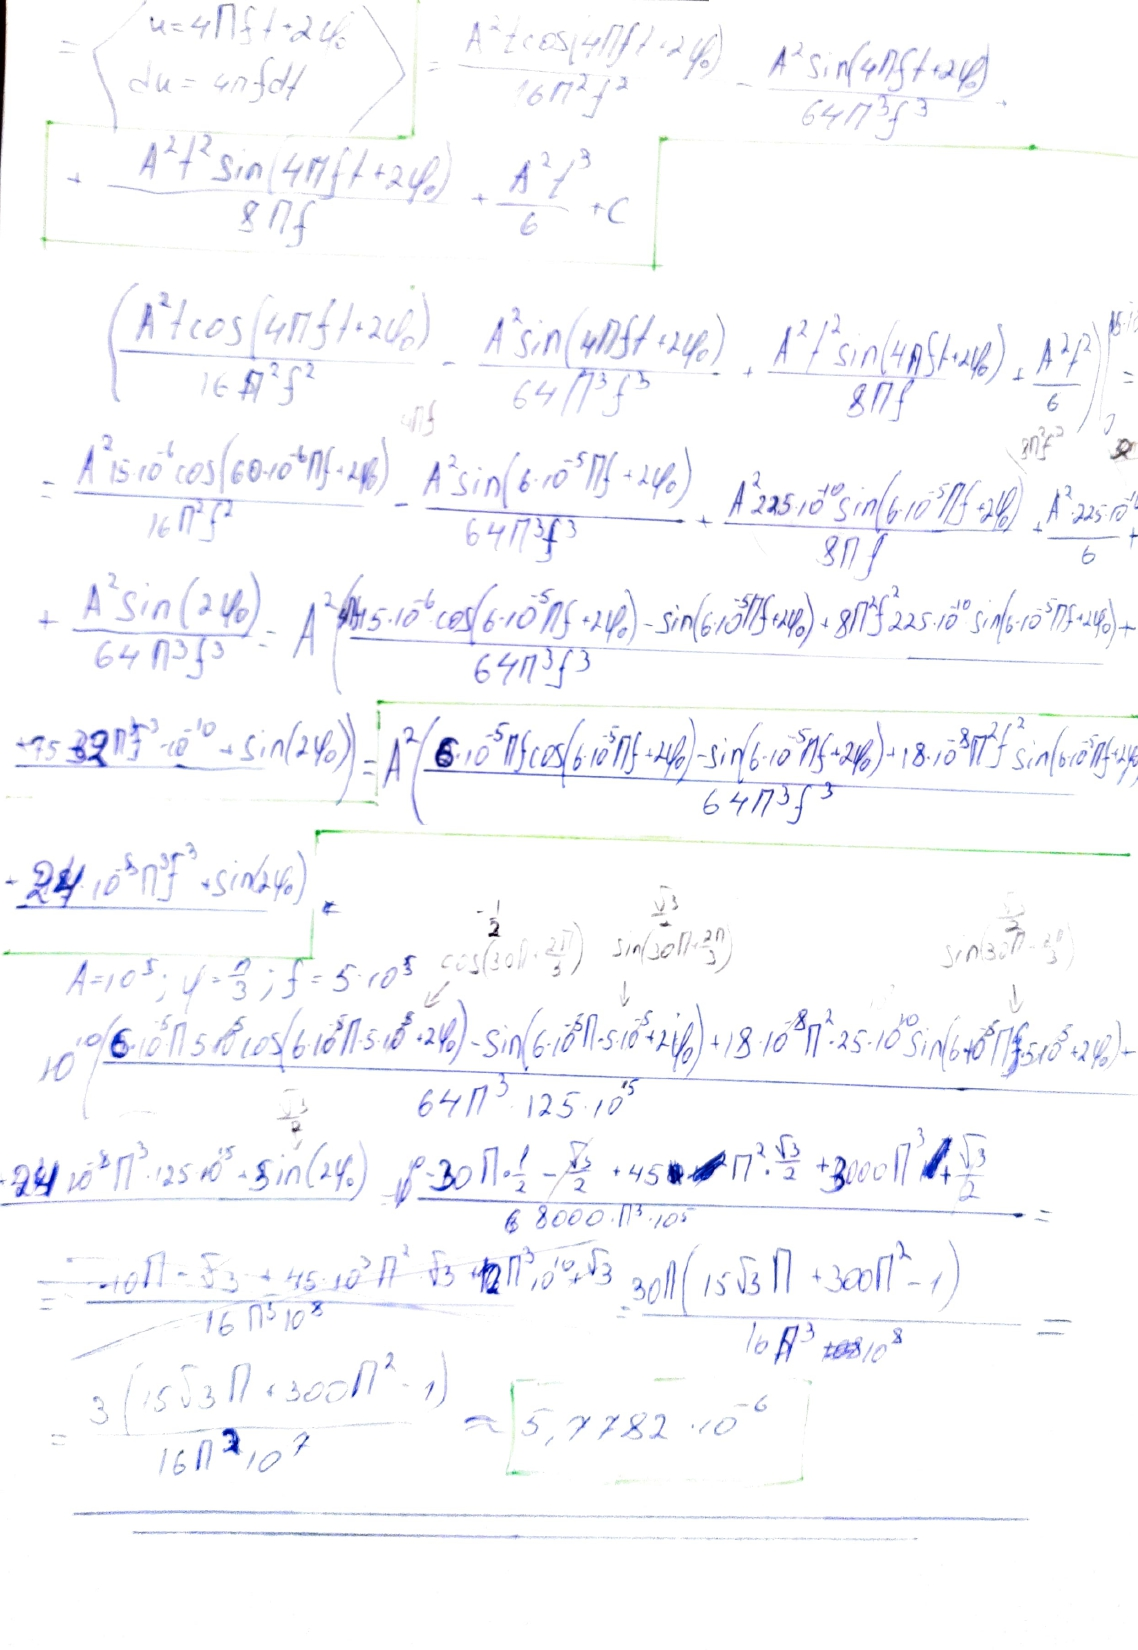 = u = 4Πft + 2φ₀
du = 4πfdt = A²tcos(4Πft + 2φ₀) / 16Π²f² - A²sin(4Πft + 2φ₀) / 64Π³f³ +
+ A²t²sin(4Πft + 2φ₀) / 8Πf + A²t³ / 6 + C
(A²tcos(4Πft + 2φ₀) / 16Π²f² - A²sin(4Πft + 2φ₀) / 64Π³f³ + A²t²sin(4Πft + 2φ₀) / 8Πf + A²t² / 6) | =
4Πf 8Π²f²
= A²15·10⁻⁶cos(60·10⁻⁶Πf + 2φ₀) / 16Π²f² - A²sin(6·10⁻⁵Πf + 2φ₀) / 64Π³f³ + A²225·10⁻¹⁰sin(6·10⁻⁵Πf + 2φ₀) / 8Πf + A²·225·10 / 6 +
+ A²sin(2φ₀) / 64Π³f³ = A²( 15·10⁻⁶·cos(6·10⁻⁵Πf + 2φ₀) - sin(6·10⁻⁵Πf + 2φ₀) + 8Π²f²225·10⁻¹⁰sin(6·10⁻⁵Πf + 2φ₀) + / 64Π³f³
+75·32Π³f³·10⁻¹⁰ + sin(2φ₀)) = A²(6·10⁻⁵Πfcos(6·10⁻⁵Πf + 2φ₀) - sin(6·10⁻⁵Πf + 2φ₀) + 18·10⁻⁸Π²f²sin(6·10⁻⁵Πf + 2φ₀ / 64Π³f³
24·10⁻⁸Π³f³ + sin(2φ₀)
-1/2 √3/2 √3/2
cos(30Π + 2Π/3) sin(30Π + 2Π/3) sin(30Π + 2Π/3)
A = 10⁵; φ = Π/3; f = 5·10⁵
10¹⁰(6·10⁻⁵Π5·10⁵cos(6·10⁻⁵Π·5·10⁵ + 2φ₀) - sin(6·10⁻⁵Π·5·10⁵ + 2φ₀) + 18·10⁻⁸Π²·25·10¹⁰sin(6·10⁻⁵Π·5·10⁵ + 2φ₀) + / 64Π³·125·10¹⁵
√3/2
24·10⁻⁸Π³·125·10¹⁵ + sin(2φ₀) = -30Π·1/2 - √3/2 + 450Π²·√3/2 + 3000Π³ + √3/2 / 8000·Π³·10⁵ =
= -10Π - √3 + 45·10³Π²√3 + 12Π³·10¹⁰ + √3 / 16Π³10⁸ = 30Π(15√3Π + 300Π² - 1) / 16Π³10⁸ =
= 3(15√3Π + 300Π² - 1) / 16Π²10⁷ ≈ 5,7782·10⁻⁶